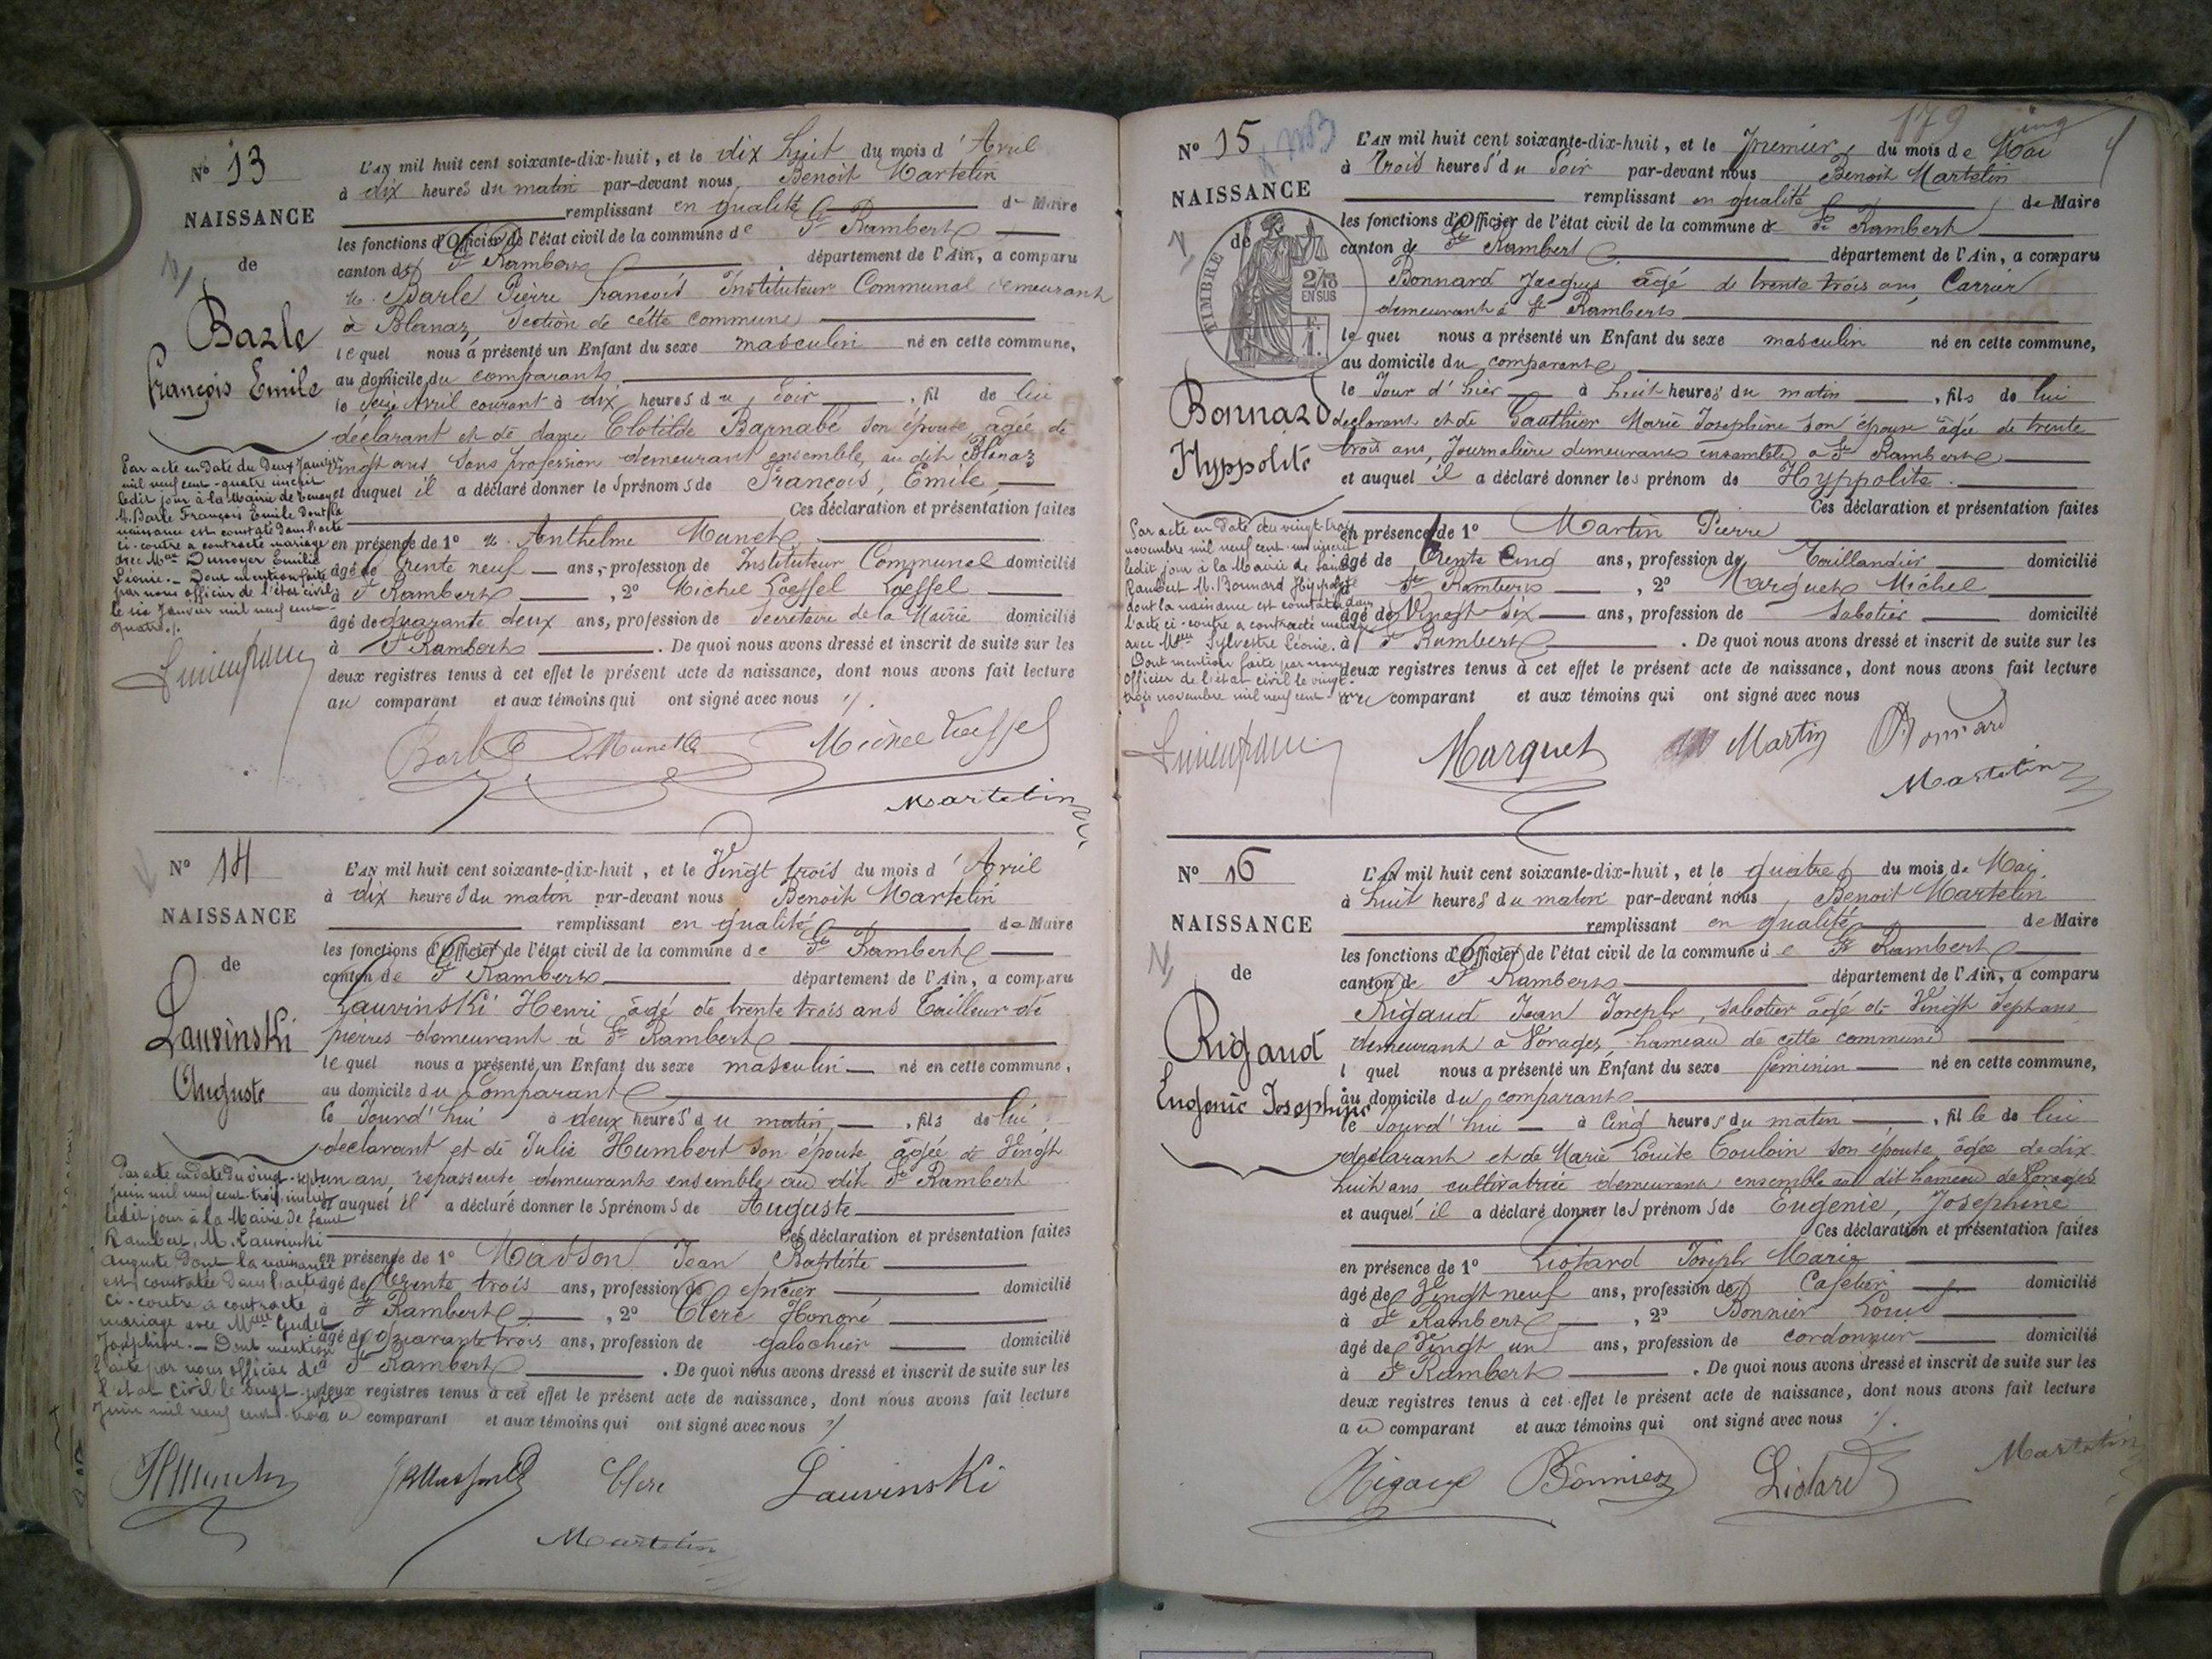 N° 13
NAISSANCE
de
Barle
François Emile
L'AN mil huit cent soixante-dix-huit, et le dix huit du mois d'Avril
à dix heures du matin par-devant nous, Benoit Martelin
remplissant en qualité de Maire
les fonctions d'Officier de l'état civil de la commune de St Rambert
canton de St Rambert département de l'Ain, a comparu
M. Barle Pierre François Instituteur Communal demeurant
à Blanaz, Section de cette commune
lequel nous a présenté un Enfant du sexe masculin né en cette commune,
au domicile du comparant
le seize Avril courant à dix heures du soir, fil de lui
déclarant et de dame Clotilde Barnabé son épouse, agée de
vingt ans sans profession demeurant ensemble, au dit Blanaz
et auquel il a déclaré donner les prénoms de François, Emile,
Ces déclaration et présentation faites
en présence de 1° M. Anthelme Munet
âgé de trente neuf ans, profession de Instituteur Communal domicilié
à St Rambert, 2° Michel Loeffel Loeffel
âgé de quarante deux ans, profession de Secrétaire de la Mairie domicilié
à St Rambert. De quoi nous avons dressé et inscrit de suite sur les
deux registres tenus à cet effet le présent acte de naissance, dont nous avons fait lecture
au comparant et aux témoins qui ont signé avec nous ./.
Par acte en date du Deux Janvier
mil neuf cent-quatre inscrit
ledit jour à la Mairie de
M. Barle François Emile dont la
naissance est constatée dans l'acte
ci-contre a contracté mariage
avec Mlle Dunoyer Emilie
Léonie.- Dont mention faite
par nous officier de l'état civil
le six Janvier mil neuf cent
quatre./.
Barle Munet Michel Loeffel
Martelin
N° 14
NAISSANCE
de
Lauvinski
Auguste
L'AN mil huit cent soixante-dix-huit, et le Vingt trois du mois d'Avril
à dix heures du matin par-devant nous Benoit Martelin
remplissant en qualité de Maire
les fonctions d'Officier de l'état civil de la commune de St Rambert
canton de St Rambert département de l'Ain, a comparu
Lauvinski Henri âgé de trente trois ans Tailleur de
pierres demeurant à St Rambert
lequel nous a présenté un Enfant du sexe masculin né en cette commune,
au domicile du Comparant
le Jourd'hui à deux heures du matin, fils de lui
déclarant et de Julie Humbert son épouse âgée de Vingt
un an, repasseuse demeurants ensemble au dit St Rambert
et auquel il a déclaré donner les prénoms de Auguste
Ces déclaration et présentation faites
en présence de 1° Masson Jean Baptiste
âgé de trente trois ans, profession de épicier domicilié
à St Rambert, 2° Clerc Honoré
âgé de Quarante trois ans, profession de galochier domicilié
à St Rambert. De quoi nous avons dressé et inscrit de suite sur les
deux registres tenus à cet effet le présent acte de naissance, dont nous avons fait lecture
au comparant et aux témoins qui ont signé avec nous ./.
Par acte en date du vingt-sept
Juin mil neuf cent-trois, inscrit
ledit jour à la Mairie de Saint
Rambert, M. Lauvinski
Auguste dont la naissance
est constatée dans l'acte
ci-contre a contracté
mariage avec Mlle Gudet
Joséphine.- Dont mention
faite par nous officier de
l'état civil le vingt-sept
Juin mil neuf cent-trois
Clerc Lauvinski
Martelin
179
N° 15
NAISSANCE
de
TIMBRE
2/10
EN SUS
Bonnard
Hyppolite
L'AN mil huit cent soixante-dix-huit, et le Premier du mois de Mai
à trois heures du soir par-devant nous Benoit Martelin
remplissant en qualité de Maire
les fonctions d'Officier de l'état civil de la commune de St Rambert
canton de St Rambert département de l'Ain, a comparu
Bonnard Jacques âgé de trente trois ans, Carrier
demeurant à St Rambert
lequel nous a présenté un Enfant du sexe masculin né en cette commune,
au domicile du comparant
le Jour d'hier à huit heures du matin, fils de lui
déclarant et de Gauthier Marie Josephine son épouse âgée de trente
trois ans, Journalière demeurants ensemble à St Rambert
et auquel il a déclaré donner les prénom de Hyppolite.
Ces déclaration et présentation faites
en présence de 1° Martin Pierre
âgé de trente Cinq ans, profession de Taillandier domicilié
à St Rambert, 2° Marquet Michel
âgé de Vingt six ans, profession de sabotier domicilié
à St Rambert. De quoi nous avons dressé et inscrit de suite sur les
deux registres tenus à cet effet le présent acte de naissance, dont nous avons fait lecture
au comparant et aux témoins qui ont signé avec nous
Par acte en date du vingt-trois
novembre mil neuf cent-un inscrit
ledit jour à la Mairie de Saint
Rambert M. Bonnard Hyppolite
dont la naissance est constatée dans
l'acte ci-contre a contracté mariage
avec Mlle Sylvestre Léonie.
Dont mention faite par nous
Officier de l'état civil le vingt-
trois novembre mil neuf cent-un
Marquet Martin Bonnard
Martelin
N° 16
NAISSANCE
de
Rigaud
Eugenie Josephine
L'AN mil huit cent soixante-dix-huit, et le quatre du mois de Mai
à huit heures du matin par-devant nous, Benoit Martelin
remplissant en qualité de Maire
les fonctions d'Officier de l'état civil de la commune de St Rambert
canton de St Rambert département de l'Ain, a comparu
Rigaud Jean Joseph, sabotier âgé de Vingt sept ans
demeurant à Vorages, hameau de cette commune
l quel nous a présenté un Enfant du sexe féminin né en cette commune,
au domicile du comparant
le Jourd'hui à Cinq heures du matin, fille de lui
déclarant et de Marie Louise Touloin son épouse âgée de dix
huit ans cultivatrice demeurans ensemble au dit hameau de Vorages
et auquel il a déclaré donner les prénoms de Eugenie, Josephine
Ces déclaration et présentation faites
en présence de 1° Liotard Joseph Marie
âgé de Vingt neuf ans, profession de Cafetier domicilié
à St Rambert, 2° Bonnier Louis
âgé de Vingt un ans, profession de cordonnier domicilié
à St Rambert. De quoi nous avons dressé et inscrit de suite sur les
deux registres tenus à cet effet le présent acte de naissance, dont nous avons fait lecture
au comparant et aux témoins qui ont signé avec nous ./.
Rigaud Bonnier Liotard Martelin